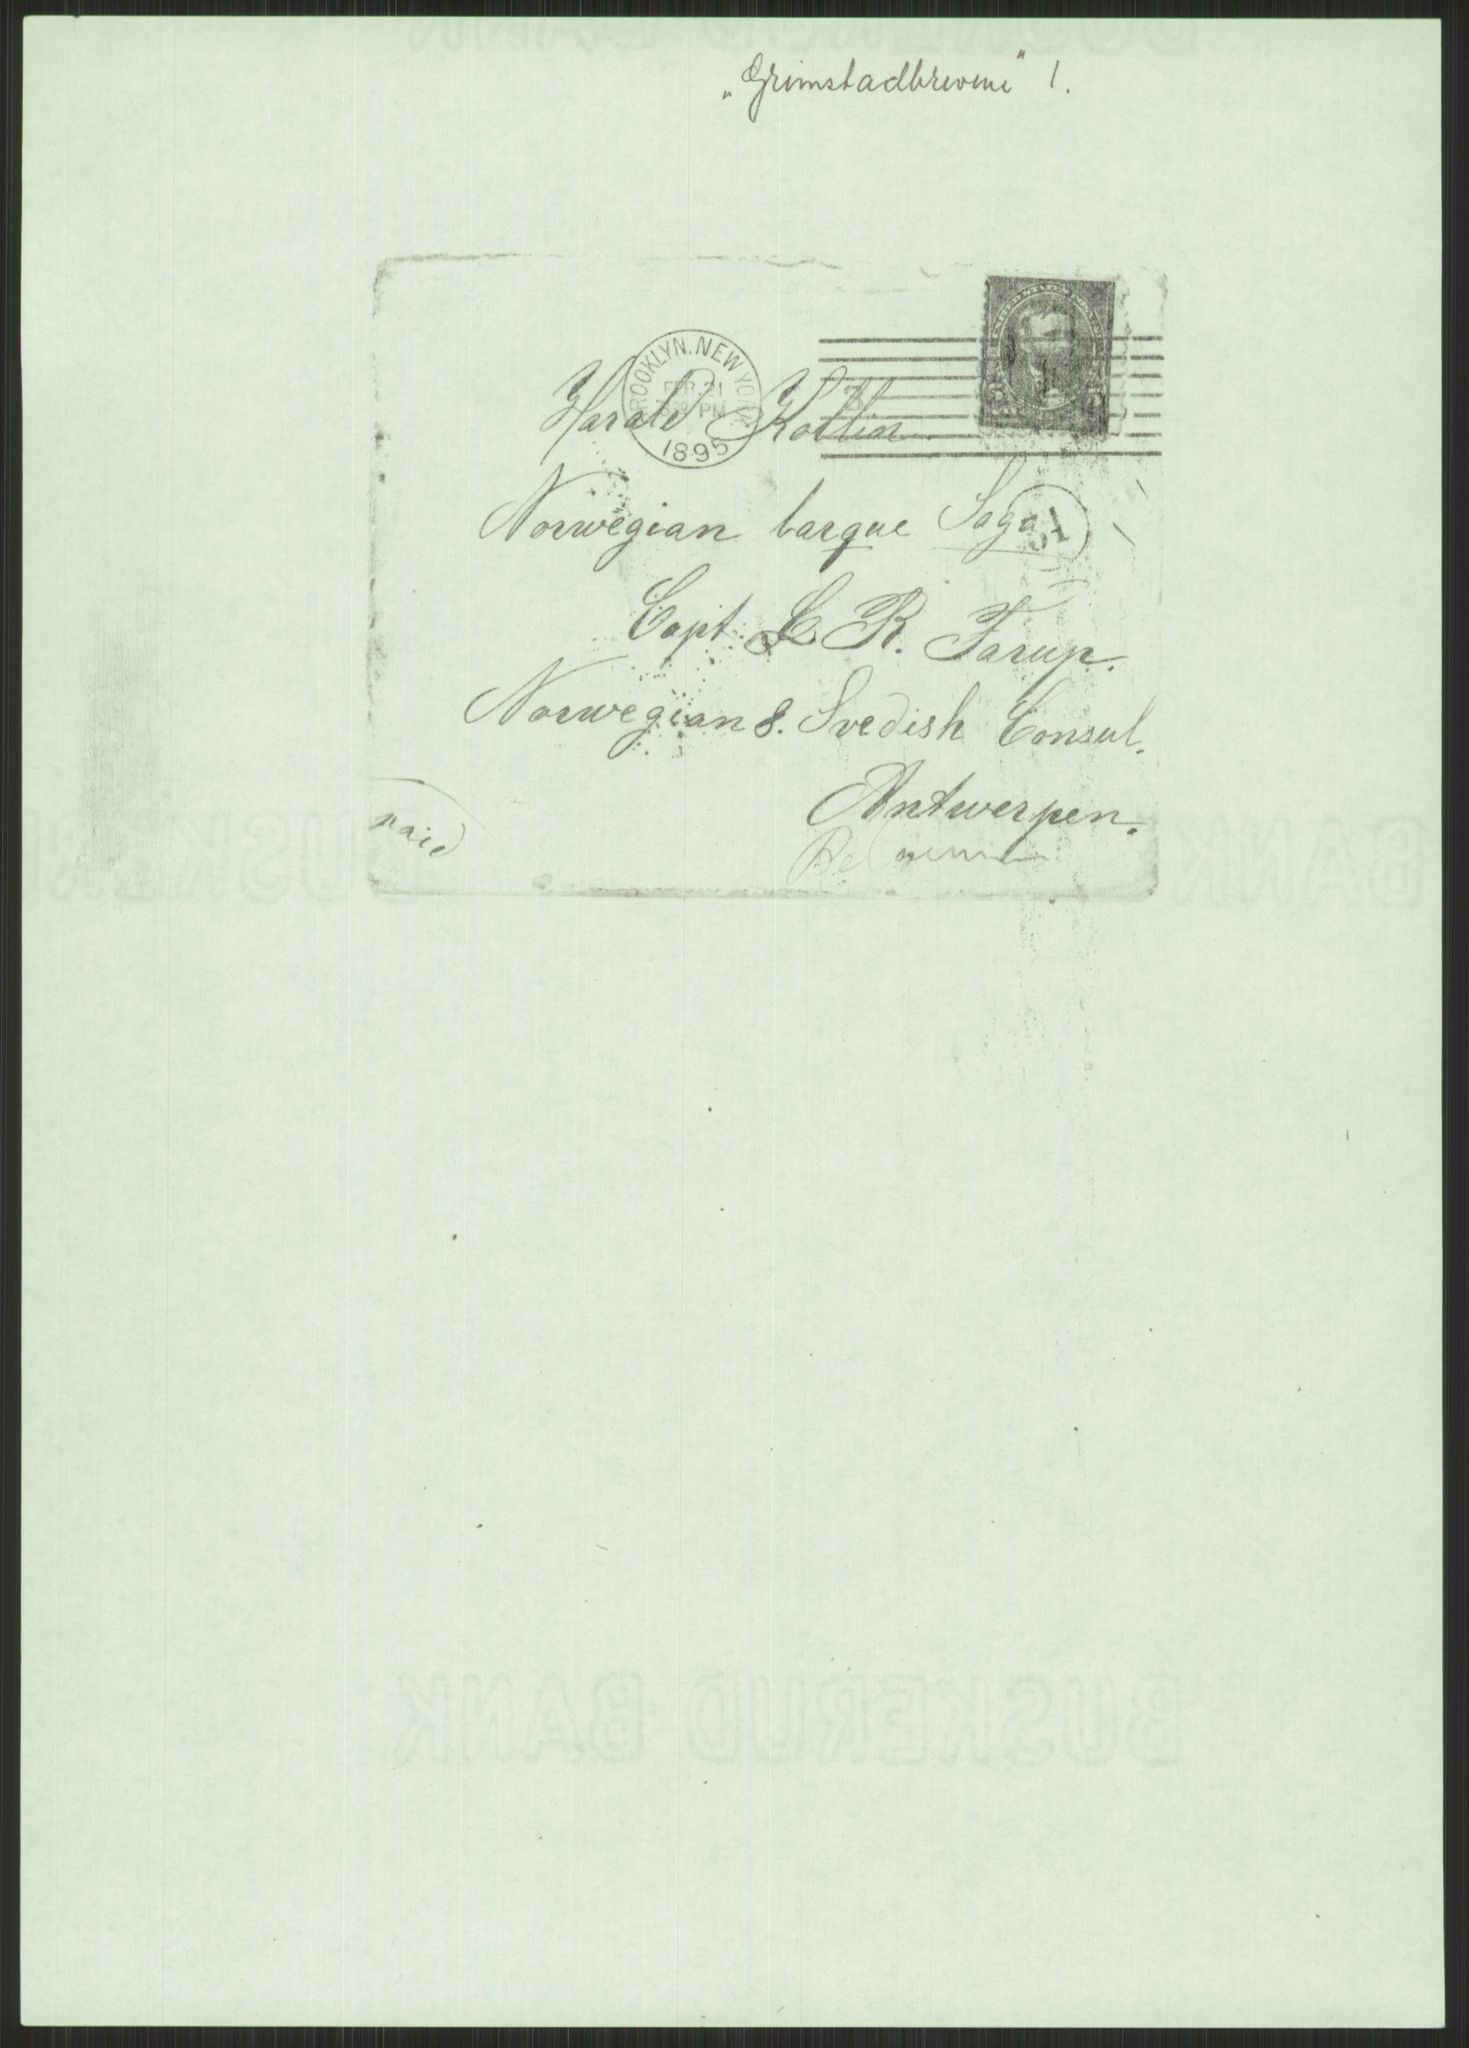 „Grimstadbrevene" 1.
BROOKLYN. NEW YORK
PM
1895
Harald
Norwegian barque Saga
Capt. R. Tarup.
Norwegian &. Svedish Consul.
Antwerpen.
paid
BUSKERUD BANK